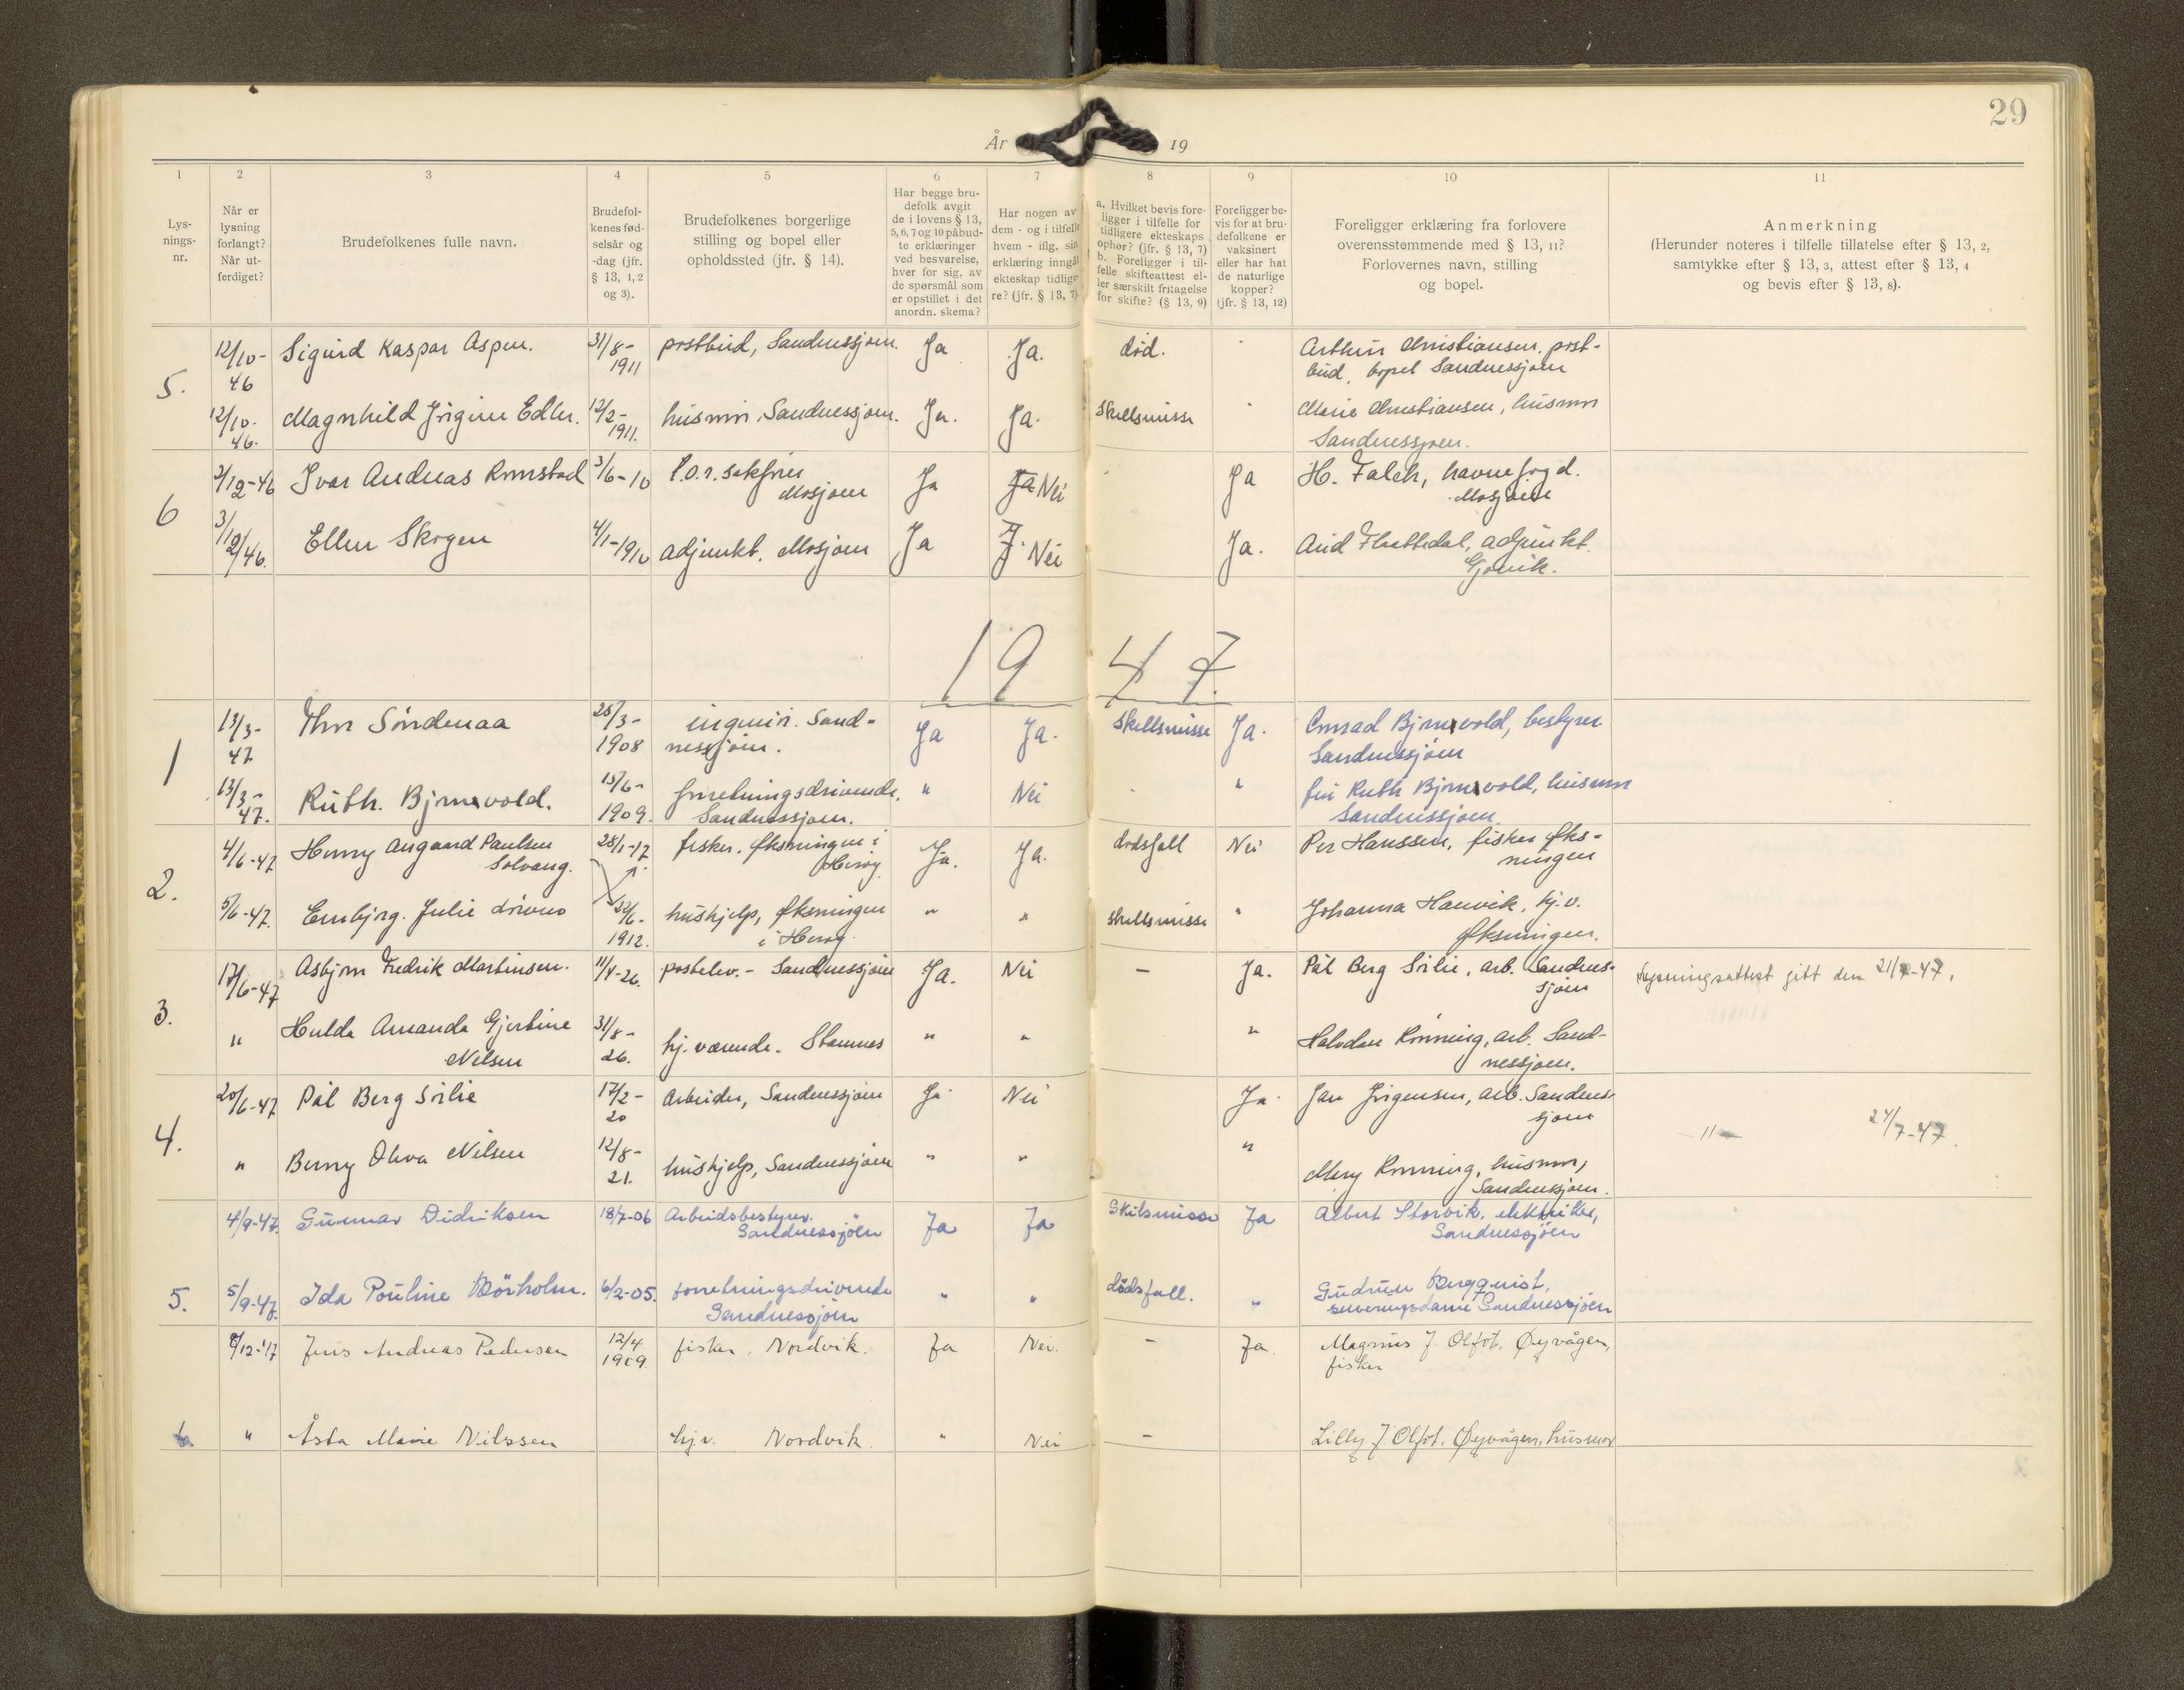 29
År 19
1 2 3 4 5 6 7 8 9 10 11
Lys-
nings-
nr.
Når er
lysning
forlangt?
Når ut-
ferdiget?
Brudefolkenes fulle navn.
Brudefol-
kenes fød-
selsår og
-dag (jfr.
§ 13, 1, 2
og 3).
Brudefolkenes borgerlige
stilling og bopel eller
opholdssted (jfr. § 14).
Har begge bru-
defolk avgit
de i lovens § 13,
5, 6, 7 og 10 påbud-
te erklæringer
ved besvarelse,
hver for sig, av
de spørsmål som
er opstillet i det
anordn. skema?
Har nogen av
dem - og i tilfelle
hvem - iflg. sin
erklæring inngåt
ekteskap tidlige-
re? (jfr. § 13, 7)
a. Hvilket bevis fore-
ligger i tilfelle for
tidligere ekteskaps
ophør? (jfr. § 13, 7)
b. Foreligger i til-
felle skifteattest el-
ler særskilt fritagelse
for skifte? (§ 13, 9)
Foreligger be-
vis for at bru-
defolkene er
vaksinert
eller har hat
de naturlige
kopper?
(jfr. § 13, 12)
Foreligger erklæring fra forlovere
overensstemmende med § 13, 11?
Forlovernes navn, stilling
og bopel.
Anmerkning
(Herunder noteres i tilfelle tillatelse efter § 13, 2,
samtykke efter § 13, 3, attest efter § 13, 4
og bevis efter § 13, 8).
5.
12/10-
46
Sigurd Kaspar Aspen.
31/8-
1911
postbud, Sandnessjøen.
Ja
Ja.
død.
Arthur Christiansen, post-
bud, bopel Sandnessjøen
12/10-
46.
Magnhild Jørgine Edler.
12/2-
1911.
husmor, Sandnessjøen.
Ja.
Ja.
Skillsmisse
Marie Christiansen, husmor
Sandnessjøen.
6
3/12-46
Ivar Andreas Romstad
3/6-10
Mosjøen
Ja
Ja Nei
Ja
H. Falch, havnefogd.
Mosjøen
3/12/46.
Ellen Skogen
4/1-1910
adjunkt. Mosjøen
Ja
J. Nei
Ja.
adjunkt.
Gjøvik.
1947.
1
13/3-
47
Thor Søndenaa
1908
ingeniør. Sand-
nessjøen.
Ja
Ja.
Skillsmisse
Ja.
Conrad Bjørnvold, bestyrer
Sandnessjøen
13/3-
47.
Ruth. Bjørnvold.
15/6-
1909.
forretningsdrivende,
Sandnessjøen.
"
Nei
"
fru Ruth Bjørnvold, husmor
Sandnessjøen.
2.
4/6-47
Henry Angaard Paulsen
Solvang.
28/1-17
fisker. Øksningen i
Herøy.
Ja.
Ja.
dødsfall
Nei
Per Hanssen, fisker Øks-
ningen
5/6-47.
Embjørg. Julie
22/6-
1912.
hushjelp, Øksningen
i Herøy.
"
"
skillsmisse
"
Johanna Hanvik, hj.v.
Øksningen.
3.
17/6-47
Asbjørn Fredrik Martinsen.
11/4-26.
postelev. - Sandnessjøen
Ja.
Nei
-
Ja.
Pål Berg Sørlie, arb. Sandnes-
sjøen
Lysningsattest gitt den 21/7-47.
"
Hulda Amanda Gjertine
Nilsen
31/8-
26.
hj. værende. Stamnes
"
"
"
Halvdan Rønning, arb. Sand-
nessjøen.
4.
20/6-47
Pål Berg Sørlie
17/2-
20
Arbeider, Sandnessjøen
Ja
Nei
Ja
Jan Jørgensen, arb. Sandnes-
sjøen
- " - 24/7-47.
"
Berny Oliva Nilsen
12/8-
21.
hushjelp, Sandnessjøen
"
"
"
Mary Rønning, husmor,
Sandnessjøen.
4/9-47.
Gunnar Didriksen
18/7-06
Arbeidsbestyrer.
Sandnessjöen
Ja
Ja
Skilsmisse
Ja
Albert Storvik. elektriker,
Sandnessjöen
5.
5/9-47.
Ida Pouline Börholm.
6/2-05.
forretningsdrivende
Sandnessjöen
"
"
dödsfall.
"
Gudrun Bergquist,
serveringsdame Sandnessjöen
8/12-47
Jens Andreas Pedersen
12/4
1909
fisker. Nordvik.
Ja
Nei.
-
Ja
Magnus J. Olfot, Øyvågen,
fisker
6.
"
Åsta Marie Nilssen
hj.v. Nordvik.
"
Nei
-
Lilly J Olfot. Øyvågen, husmor